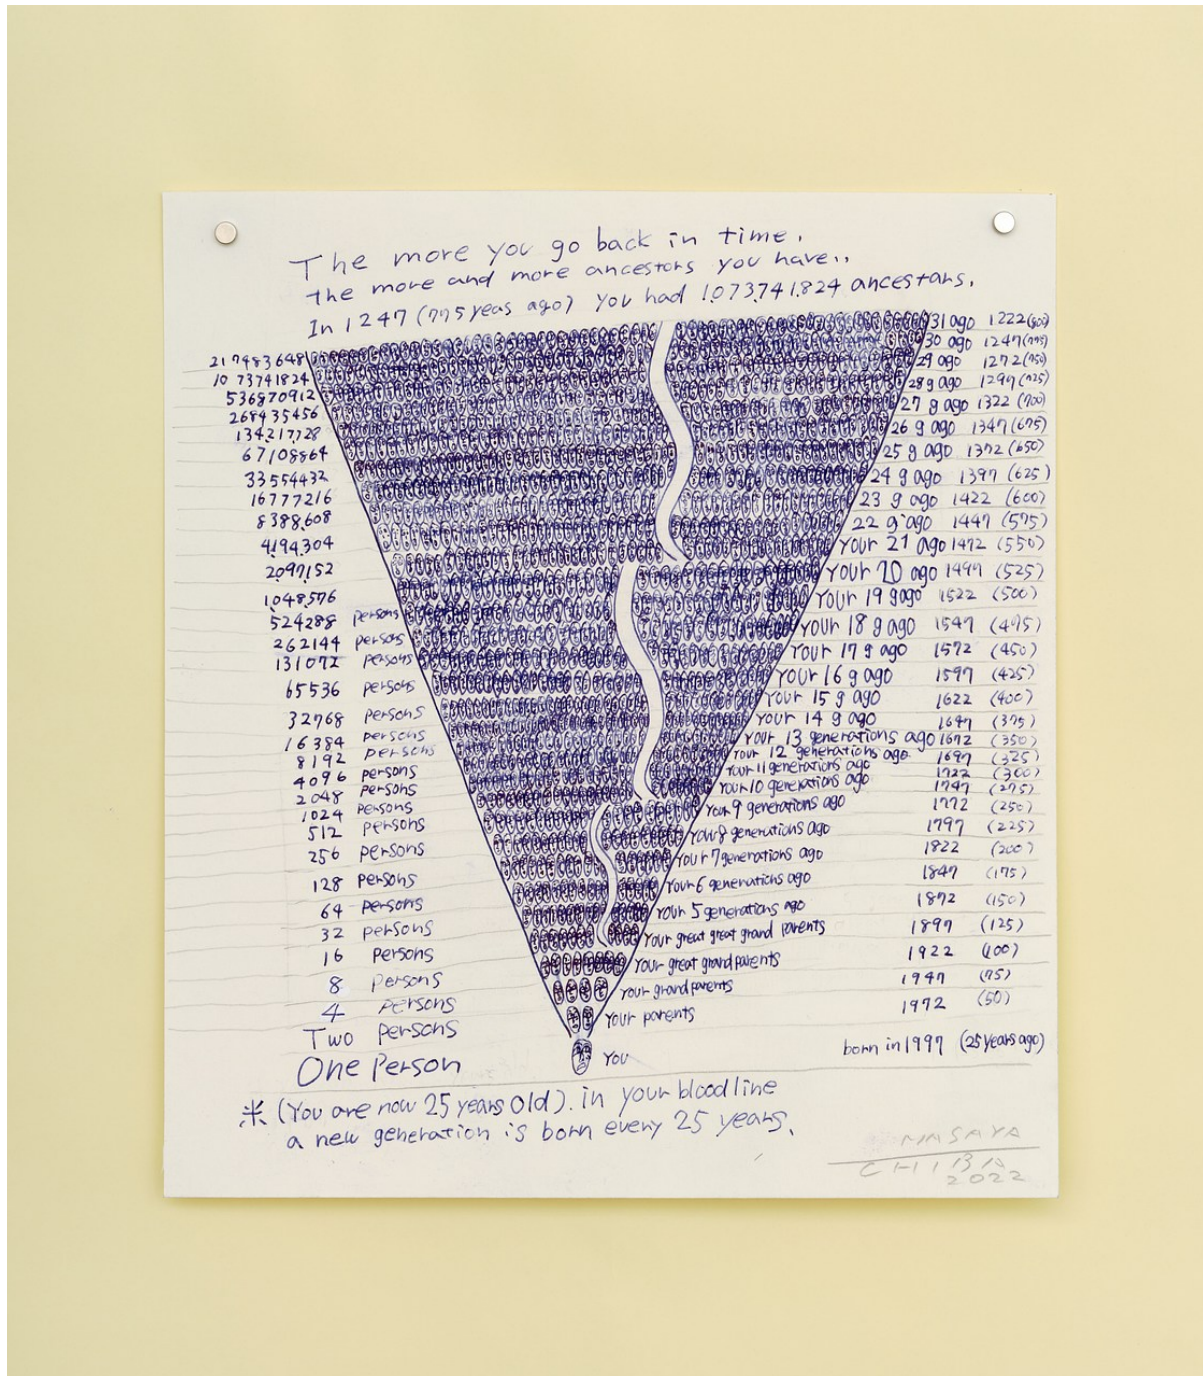 The more you go back in time.
the more and more ancestors you have..
In 1247 (775 yeas ago) you had 1.073.741.824 ancestors.
217483648
10 73741824
536870912
268435456
134217728
67108864
33554432
16777216
8388608
4194304
2097152
1048576
524288 persons
262144 persons
131072 persons
65536 persons
32768 persons
16384 persons
8192 persons
4096 persons
2048 persons
1024 persons
512 persons
256 persons
128 persons
64 persons
32 persons
16 persons
8 persons
4 persons
Two persons
One Person
31 ago 1222 (800)
30 ago 1247 (775)
29 ago 1272 (750)
28 g ago 1297 (725)
27 g ago 1322 (700)
26 g ago 1347 (675)
25 g ago 1372 (650)
24 g ago 1397 (625)
23 g ago 1422 (600)
22 g ago 1447 (575)
Your 21 ago 1472 (550)
Your 20 ago 1497 (525)
Your 19 g ago 1522 (500)
Your 18 g ago 1547 (475)
Your 17 g ago 1572 (450)
Your 16 g ago 1597 (425)
Your 15 g ago 1622 (400)
Your 14 g ago 1647 (375)
Your 13 generations ago 1672 (350)
Your 12 generations ago 1697 (325)
Your 11 generations ago 1722 (300)
Your 10 generations ago 1747 (275)
Your 9 generations ago 1772 (250)
Your 8 generations ago 1797 (225)
Your 7 generations ago 1822 (200)
Your 6 generations ago 1847 (175)
Your 5 generations ago 1872 (150)
Your great great grand parents 1897 (125)
Your great grand parents 1922 (100)
Your grand parents 1947 (75)
Your parents 1972 (50)
YOU born in 1997 (25 years ago)
※ (You are now 25 years old). in your bloodline
a new generation is born every 25 years.
MASAYA
CHIBA
2022